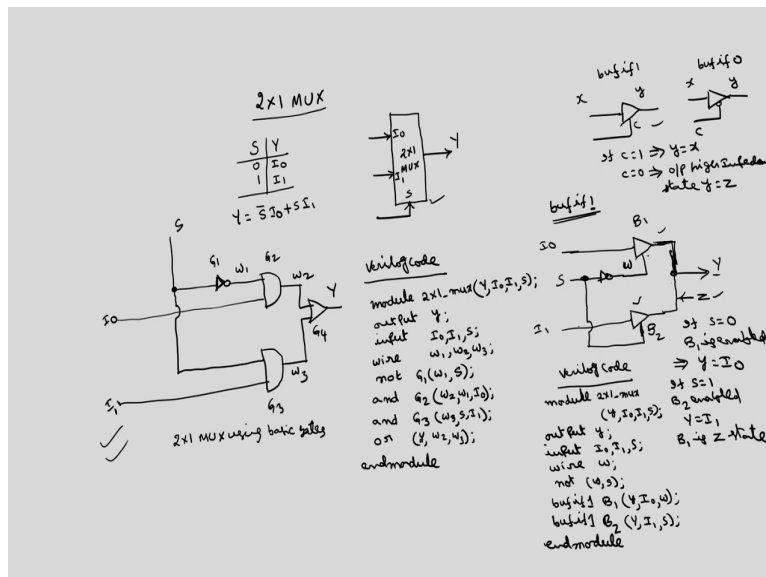 2x1 MUX
S Y
0 I0
1 I1
Y = S̄ I0 + S I1
I0
I1
2x1
MUX
S
Y
S
G1
W1
G2
W2
I0
Y
G4
W3
I1
G3
2x1 MUX using basic gates
verilog code
module 2x1_mux(Y,I0,I1,S);
output y;
input I0,I1,S;
wire w1,w2,w3;
not G1(w1,S);
and G2(w2,w1,I0);
and G3(w3,S,I1);
or (Y,w2,w3);
endmodule
bufif1
x
y
c
bufif0
x
y
c
If c=1 ⇒ y=x
c=0 ⇒ o/p
state y=Z
bufif1
B1
I0
S
w
Y
Z
I1
B2
If S=0
B1 is enabled
⇒ Y=I0
If S=1
B2 enabled
Y=I1
B1 is Z state
verilog code
module 2x1_mux
(Y,I0,I1,S);
output y;
input I0,I1,S;
wire w;
not (w,s);
bufif1 B1(Y,I0,w);
bufif1 B2(Y,I1,S);
endmodule